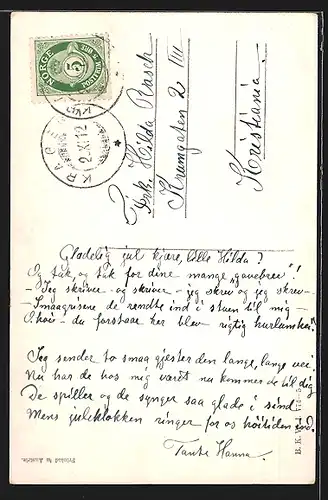 NORGE
5
POSTFRIM
KRAGERØ
2.XII.12
Frk. Hilda Rasch
Krumgaten 2 III
Kristiania.
Glædelig jul kjære, lille Hilda!
Og tak og tak for dine mange "gavebrev"!
- Jeg skriver - og skriver - jeg skrev og jeg skrev -
- Smaagrisene de rendte ind i stuen til mig -
Ohoi - du forstaar her blev rigtig hurlumhei"
Jeg sender to smaa gjester den lange, lange vei.
Nu har de hos mig været nu kommer de til dig
De spiller og de synger saa glade i sind
Mens juleklokken ringer for os høitiden ind.
Tante Hanna.
Printed in Austria.
B. K. W. I.